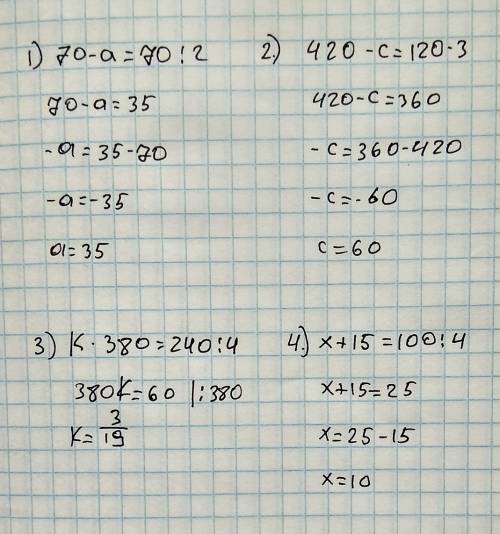 1) 70-a=70:2
70-a=35
-a=35-70
-a=-35
a=35
2.) 420-c=120·3
420-c=360
-c=360-420
-c=-60
c=60
3) K·380=240:4
380K=60 |:380
K=3/19
4.) x+15=100:4
x+15=25
x=25-15
x=10